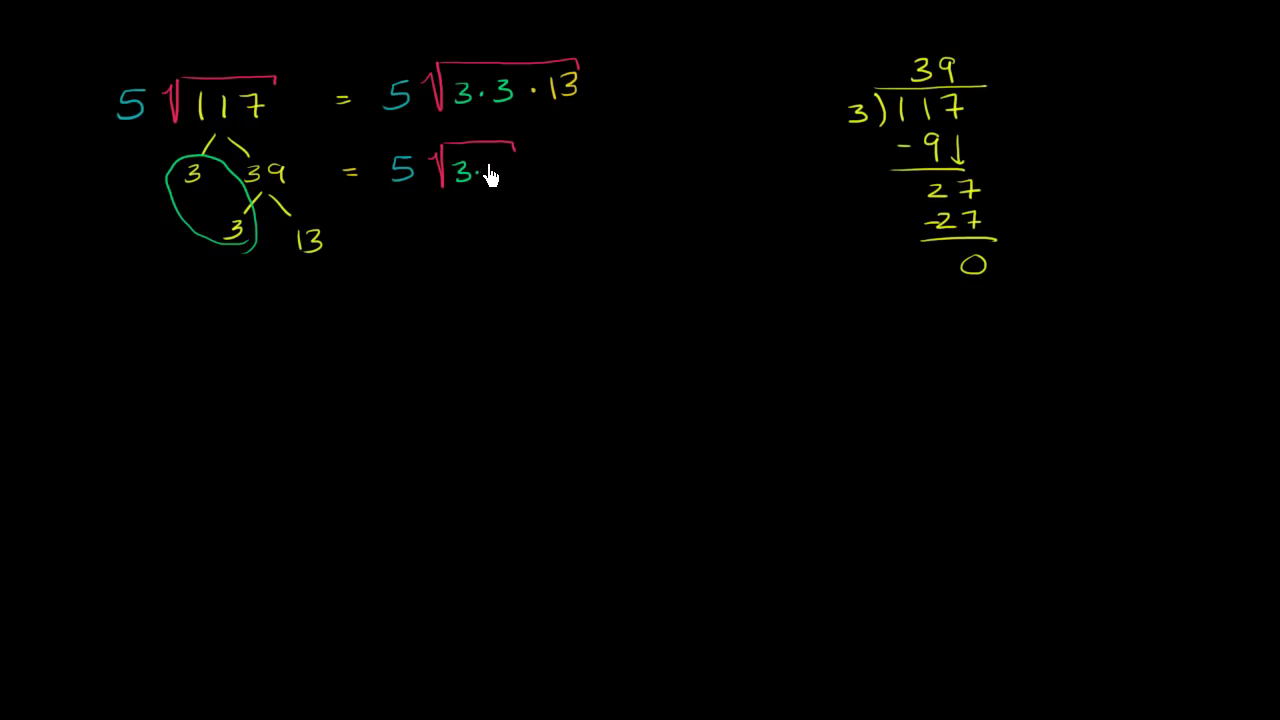 5 √117 = 5 √3·3·13
3 39 = 5 √3·
3 13
39
3)117
-9↓
27
-27
0